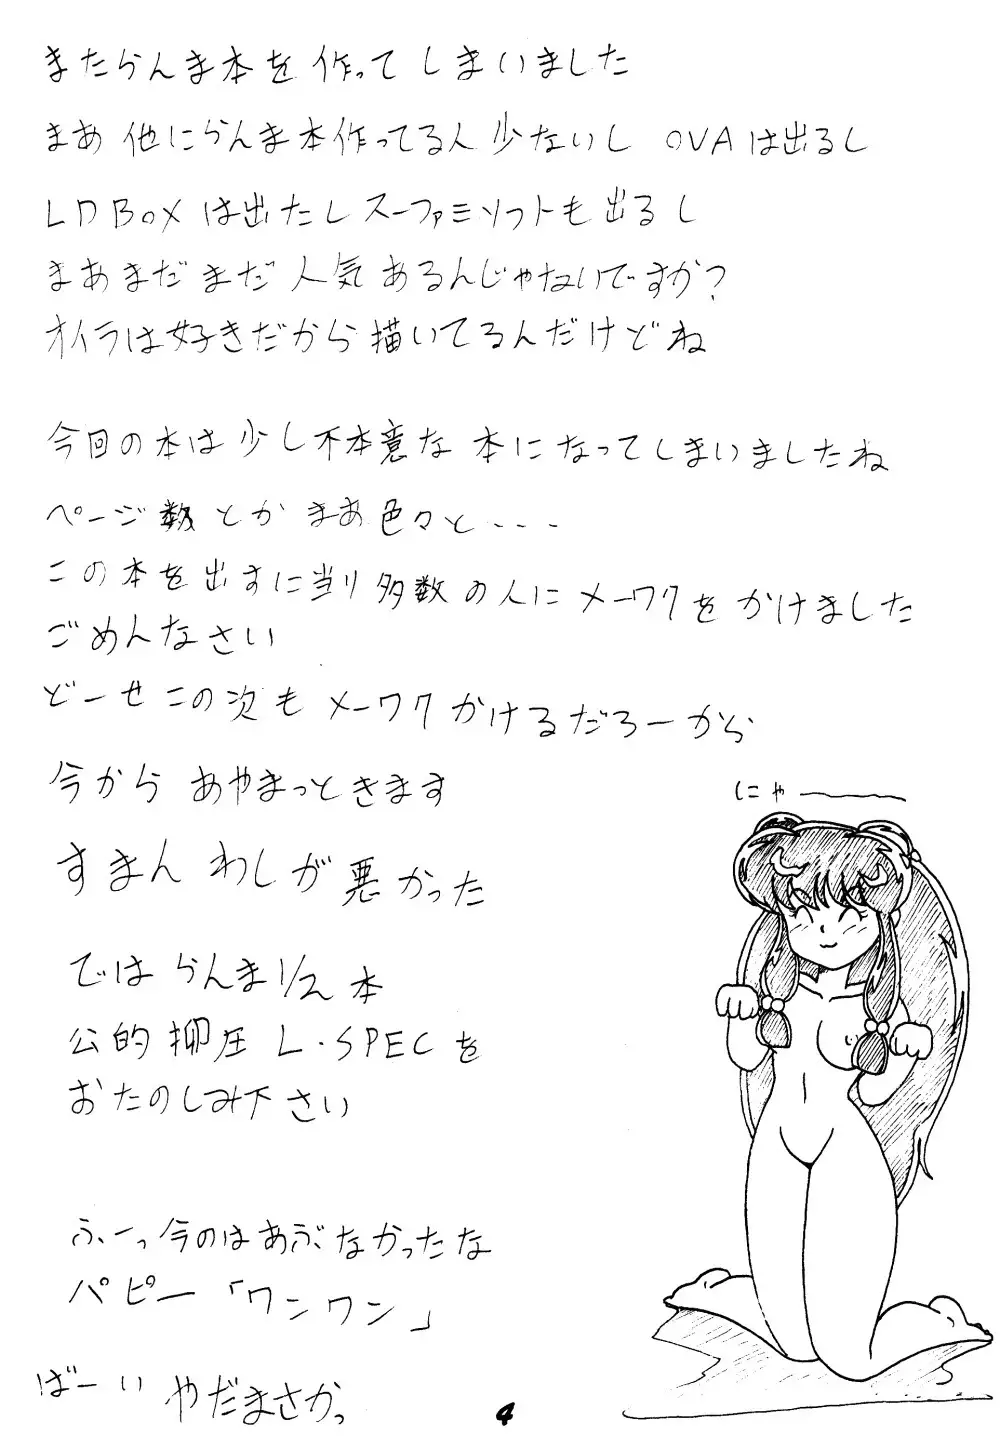 またらんま本を作ってしまいました
まあ他にらんま本作ってる人少ないし OVAは出るし
LDBOXは出たしスーファミソフトも出るし
まあまだまだ人気あるんじゃないですか?
オイラは好きだから描いてるんだけどね
今回の本は少し不本意な本になってしまいましたね
ページ数とかまあ色々と・・・
この本を出すに当り多数の人にメーワクをかけました
ごめんなさい
どーせこの次もメーワクかけるだろーから
今からあやまっときます
すまんわしが悪かった
にゃー
では らんま1/2本
公的抑圧 L・SPECを
おたのしみ下さい
ふーっ今のはあぶなかったな
パピー「ワンワン」
ばーい やだまさかっ
4